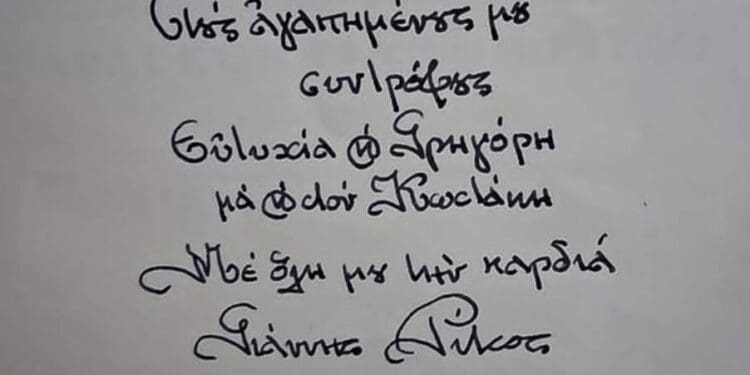 Στούς ἀγαπημένους μου
συντρόφους
Εὐτυχία καί Γρηγόρη
μά καί στόν Κωστάκη
Μέ ὅλη μου τήν καρδιά
Γιάννης Ρίτσος